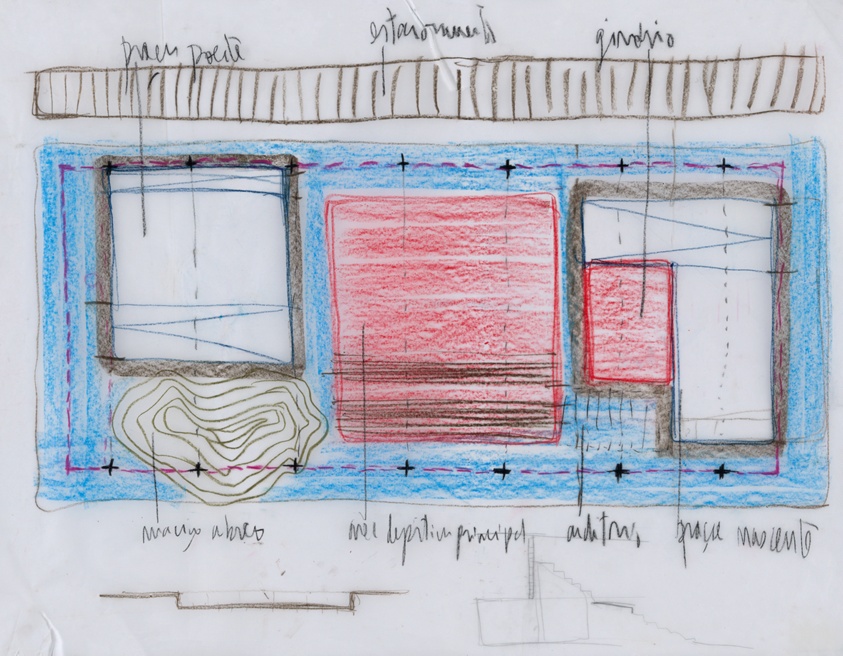 praça poente
estacionamento
ginásio
maciço
nave depositiva principal
auditório
praça nascente